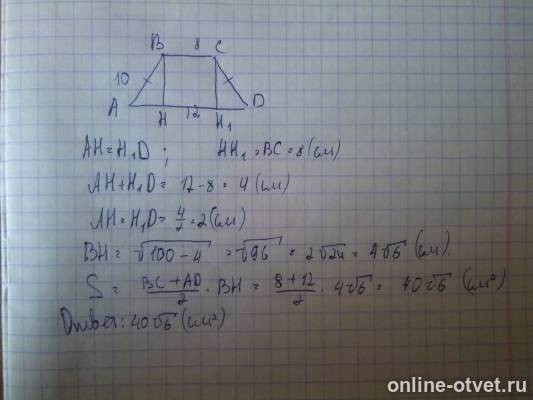 B 8 C
10
A H 12 H₁ D
AH = H₁D ; HH₁ = BC = 8 (см)
AH + H₁D = 12 - 8 = 4 (см)
AH = H₁D = 4/2 = 2 (см)
BH = √100 - 4 = √96 = 2√24 = 4√6 (см).
S = BC + AD/2 · BH = 8 + 12/2 · 4√6 = 40√6 (см²)
Ответ: 40√6 (см²)
online-otvet.ru